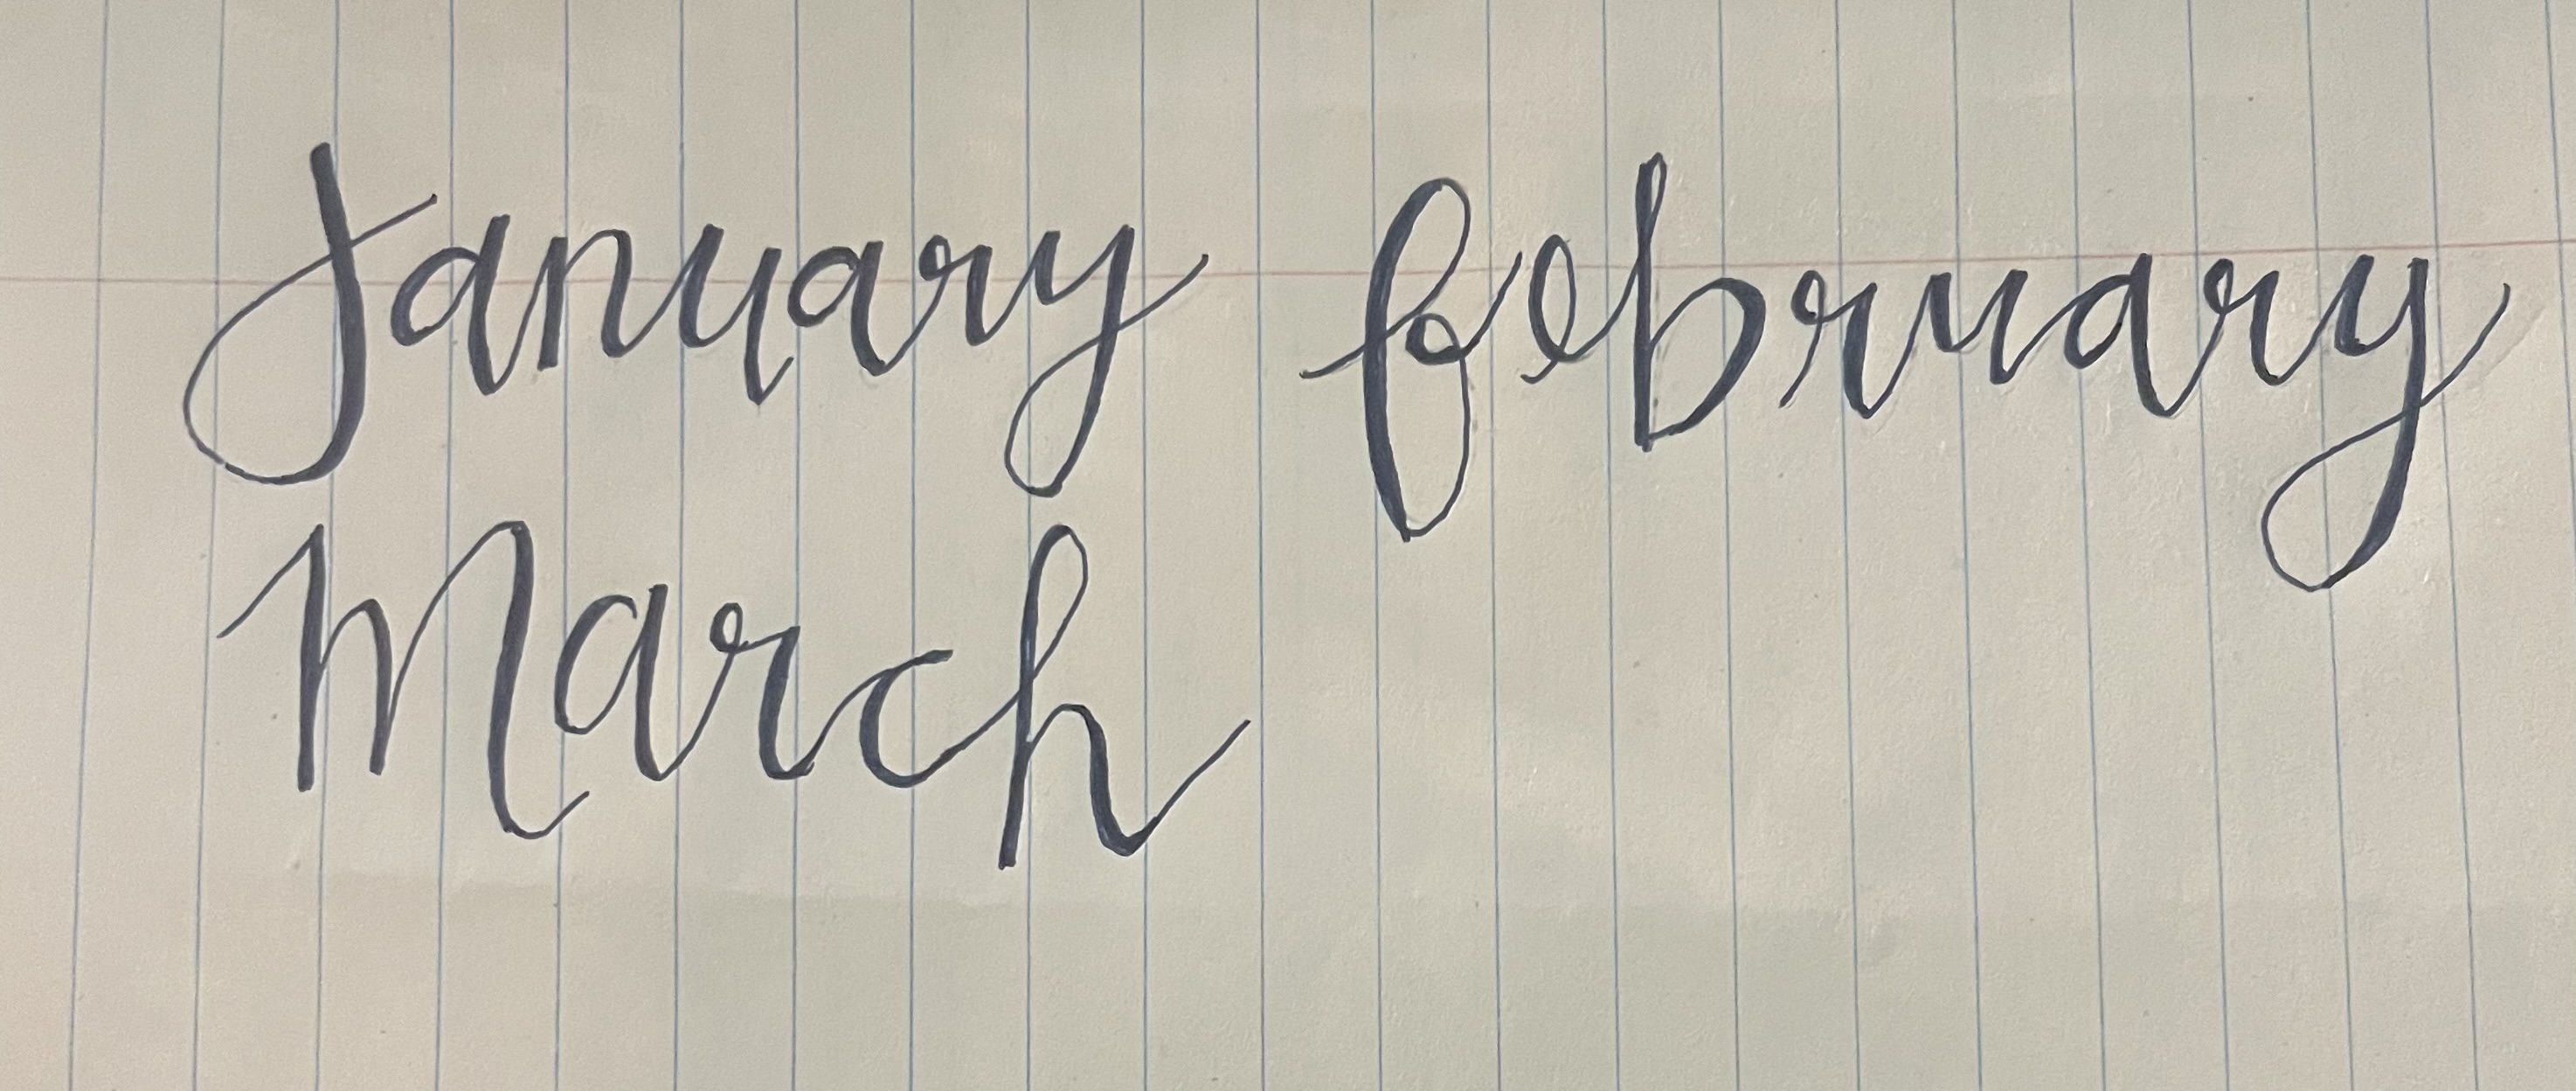 January february
March